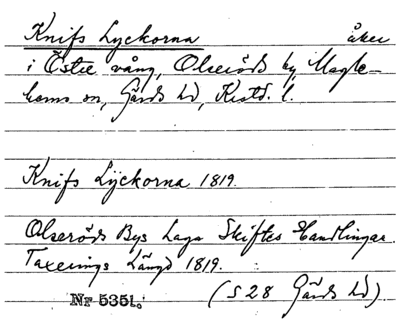 Knifs Lyckorna åker
i Östre vång, Olseröds by, Magle-
hems sn, Gärds hd, Kristd. l.
Knifs Lyckorna 1819.
Olseröds Bys Laga Skiftes Handlingar
Taxerings Längd 1819.
(S 28 Gärds hd)
Nr 5351.